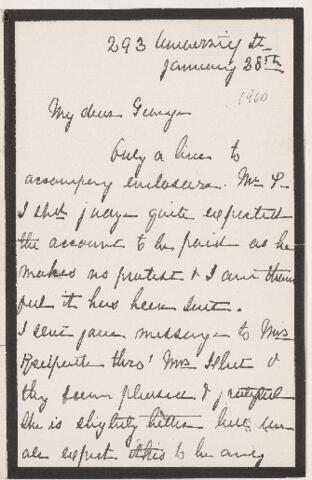 293 University St
January 28th
1900
My dear George
Only a line to
accompany enclosure. Mr P.
I shd judge quite expected
the account to be paid as he
makes no protest & I am
it has been sent.
I sent your message to Mrs
thro' Mrs &
they seem pleased & grateful
She is slightly better but
expect this to be